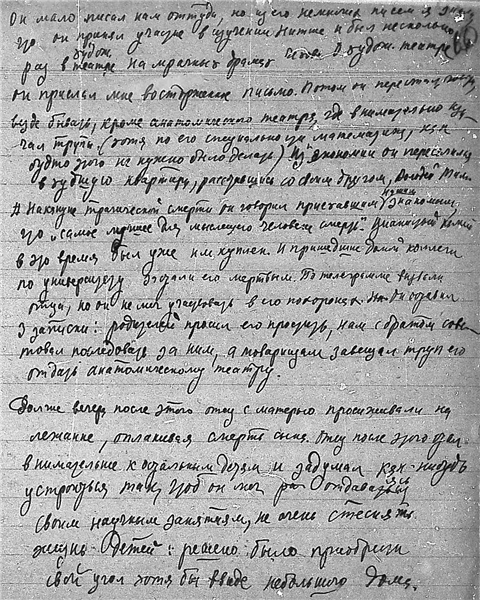 Он мало писал нам оттуда, но из его немногих писем я знаю
что он принял участие в изучении Ницше и был несколько
раз в театре на мрачных драмах худож. театре
он прислал мне восторженное письмо. Потом он перестал
везде бывать, кроме анатомического театра, где внимательно изу-
чал трупы (хотя по его специальности математики, как
будто этого не нужно было делать) Из экономии он переехал
в худшую квартиру, рассорившись со своим другом,
Накануне трагической смерти он говорил приехавшим знакомым,
что "самое лучшее для мыслящего человека смерть". Цианистый калий
в это время был уже им куплен. И пришедшие домой коллеги
по университету застали его мертвым. По телеграмме вызвали
отца, но он не мог участвовать в его похоронах. Он оставил
3 записки: родителей просил его простить, нам с братом сове-
товал последовать за ним, а товарищам завещал труп его
отдать анатомическому театру.
Долгие вечера после этого отец с матерью просиживали на
лежанке, оплакивая смерть сына. Отец после этого стал
внимательнее к остальным детям и задумал как-нибудь
устроиться так, чтоб он мог отдаваться
своим научным занятиям, не очень стесняя
жизнь детей: решено было приобрести
свой угол хотя бы в виде небольшого дома.